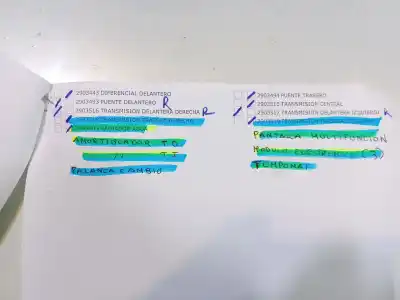 2903443 DIFERENCIAL DELANTERO
2903493 PUENTE DELANTERO R
2903516 TRANSMISION DELANTERA DERECHA R
AMORTIGUADOR T.D
" T.I
PALANCA CAMBIO
2903494 PUENTE TRASERO
2903515 TRANSMISION CENTRAL
2903517 TRANSMISION DELANTERA IZQUIERDA R
PANTALLA MULTIFUNCION
MODULO ELECTRONICO (3)
TEMPOMAT